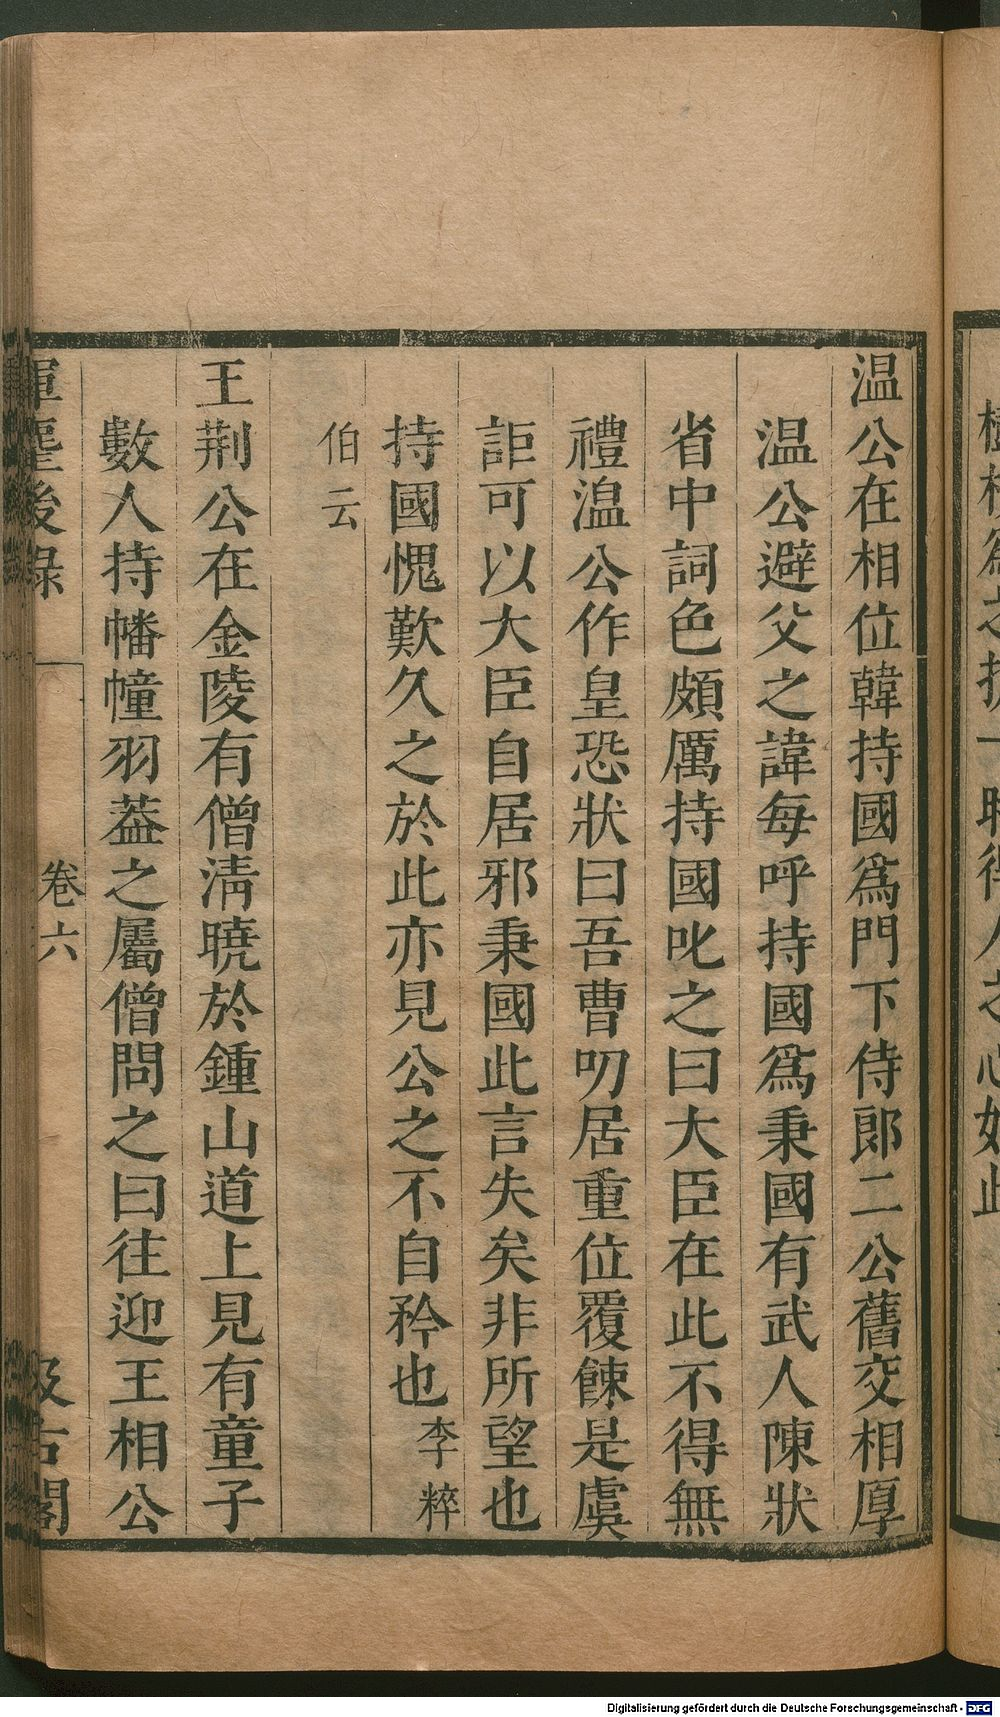 温公在相位韓持國爲門下侍郎二公舊交相厚
温公避父之諱每呼持國爲秉國有武人陳狀
省中詞色頗厲持國叱之曰大臣在此不得無
禮温公作皇恐狀曰吾曹叨居重位覆餗是虞
詎可以大臣自居邪秉國此言失矣非所望也
持國愧歎久之於此亦見公之不自矜也李粹
伯云
王荆公在金陵有僧清曉於鍾山道上見有童子
數人持幡幢羽葢之屬僧問之曰往迎王相公
揮麈後錄 卷六 汲古閣
Digitalisierung gefördert durch die Deutsche Forschungsgemeinschaft - DFG